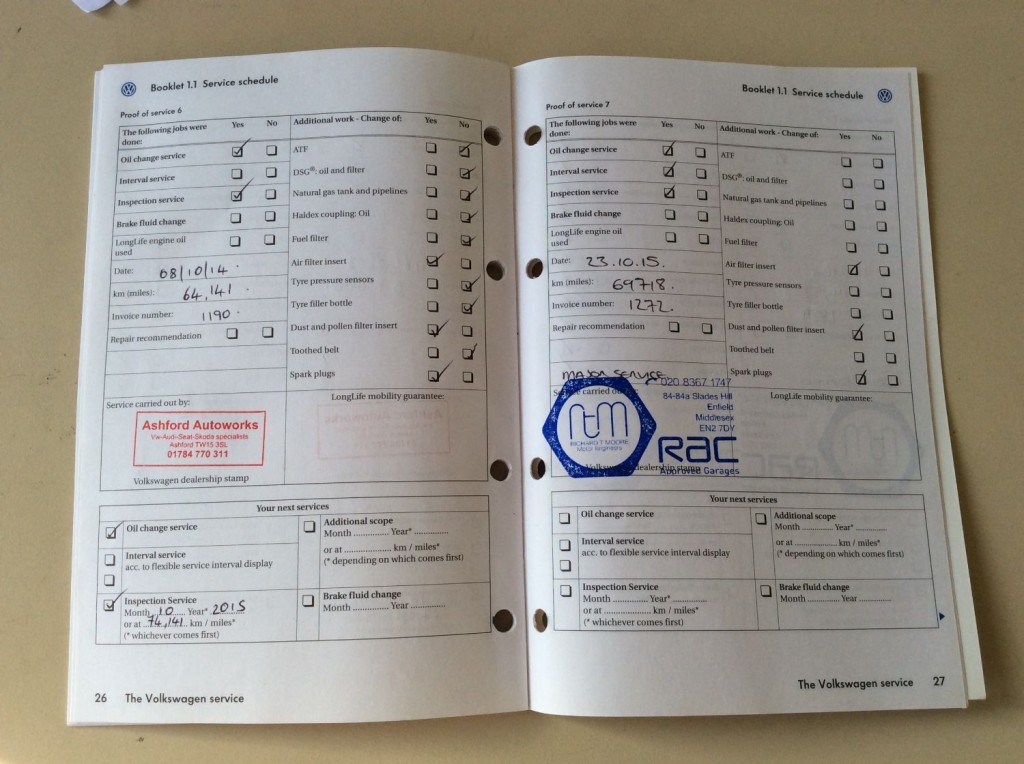 Booklet 1.1 Service schedule
Proof of service 6
The following jobs were done:
Yes No
Additional work - Change of:
Yes No
Oil change service
ATF
Interval service
DSG®: oil and filter
Inspection service
Natural gas tank and pipelines
Brake fluid change
Haldex coupling: Oil
LongLife engine oil used
Fuel filter
Date: 08/10/14.
Air filter insert
km (miles): 64,141
Tyre pressure sensors
Invoice number: 1190.
Tyre filler bottle
Repair recommendation
Dust and pollen filter insert
Toothed belt
Spark plugs
Service carried out by:
LongLife mobility guarantee:
Ashford Autoworks
Vw-Audi-Seat-Skoda specialists
Ashford TW15 3SL
01784 770 311
Volkswagen dealership stamp
Your next services
Oil change service
Additional scope
Month .............. Year* ..............
Interval service
acc. to flexible service interval display
or at ................... km / miles*
(* depending on which comes first)
Inspection Service
Month 10 Year* 2015
or at 74,141 km / miles*
(* whichever comes first)
Brake fluid change
Month .............. Year ..............
26 The Volkswagen service
Booklet 1.1 Service schedule
Proof of service 7
The following jobs were done:
Yes No
Additional work - Change of:
Yes No
Oil change service
ATF
Interval service
DSG®: oil and filter
Inspection service
Natural gas tank and pipelines
Brake fluid change
Haldex coupling: Oil
LongLife engine oil used
Fuel filter
Date: 23.10.15.
Air filter insert
km (miles): 69718.
Tyre pressure sensors
Invoice number: 1272.
Tyre filler bottle
Repair recommendation
Dust and pollen filter insert
Toothed belt
MAJOR SERVICE
Spark plugs
LongLife mobility guarantee:
020 8367 1747
84-84a Slades Hill
Enfield
Middlesex
EN2 7DY
rtm
RICHARD T MOORE
Motor Engineers
RAC
Approved Garages
Volkswagen dealership stamp
Your next services
Oil change service
Additional scope
Month .............. Year* ..............
Interval service
acc. to flexible service interval display
or at ................... km / miles*
(* depending on which comes first)
Inspection Service
Month .............. Year* ..............
or at ................... km / miles*
(* whichever comes first)
Brake fluid change
Month .............. Year ..............
The Volkswagen service 27